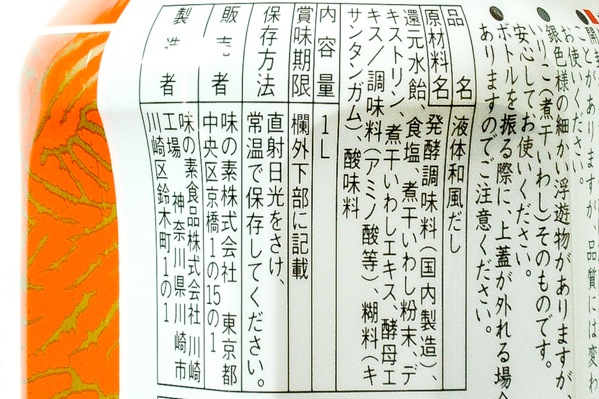 開封
ことがありますが、品質には変わ
お使いください。
銀色様の細かい浮遊物がありますが、
いりこ(煮干いわし)そのものです。
安心してお使いください。
●ボトルを振る際に、上蓋が外れる場合
ありますのでご注意ください。
品名 液体和風だし
原材料名 発酵調味料(国内製造)、
還元水飴、食塩、煮干いわし粉末、デ
キストリン、煮干いわしエキス、酵母エ
キス/調味料(アミノ酸等)、糊料(キ
サンタンガム)、酸味料
内容量 1L
賞味期限 欄外下部に記載
保存方法 直射日光をさけ、
常温で保存してください。
販売者 味の素株式会社 東京都
中央区京橋1の15の1
製造者 味の素食品株式会社 川崎
工場 神奈川県川崎市
川崎区鈴木町1の1